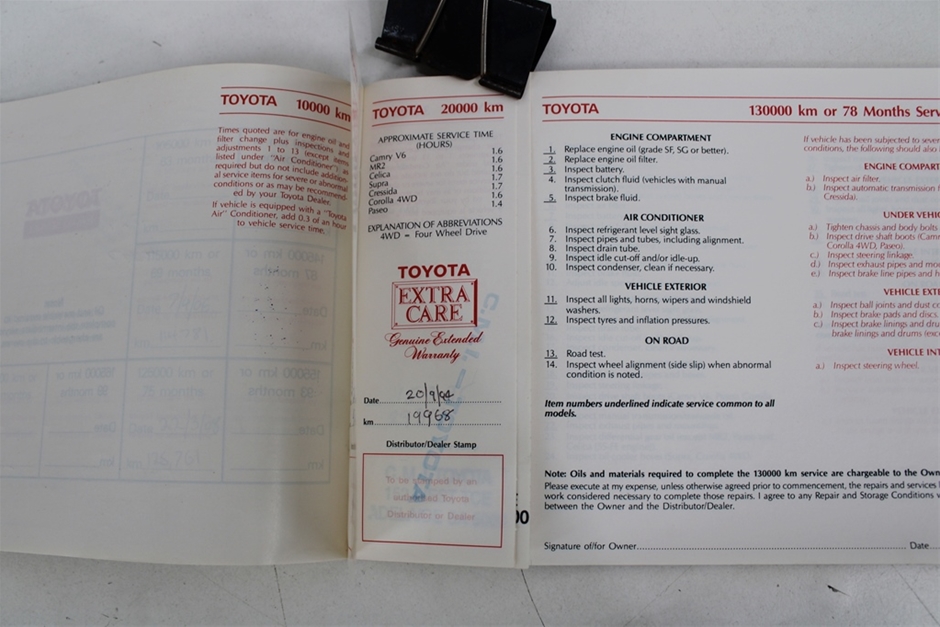 TOYOTA 10000 km
Times quoted are for engine oil and
filter change plus inspections and
adjustments 1 to 13 (except items
listed under "Air Conditioner") as
required but do not include addition-
al service items for severe or abnormal
conditions or as may be recommend-
ed by your Toyota Dealer.
If vehicle is equipped with a "Toyota
Air" Conditioner, add 0.3 of an hour
to vehicle service time.
TOYOTA 20000 km
APPROXIMATE SERVICE TIME
(HOURS)
Camry V6 1.6
MR2 1.6
Celica 1.6
Supra 1.7
Cressida 1.7
Corolla 4WD 1.6
Paseo 1.4
EXPLANATION OF ABBREVIATIONS
4WD = Four Wheel Drive
TOYOTA
EXTRA
CARE
Genuine Extended
Warranty
Date 20/9/94
km 19968
Distributor/Dealer Stamp
To be stamped by an
authorised Toyota
Distributor or Dealer
TOYOTA 130000 km or 78 Months Serv
ENGINE COMPARTMENT
1. Replace engine oil (grade SF, SG or better).
2. Replace engine oil filter.
3. Inspect battery.
4. Inspect clutch fluid (vehicles with manual
transmission).
5. Inspect brake fluid.
AIR CONDITIONER
6. Inspect refrigerant level sight glass.
7. Inspect pipes and tubes, including alignment.
8. Inspect drain tube.
9. Inspect idle cut-off and/or idle-up.
10. Inspect condenser, clean if necessary.
VEHICLE EXTERIOR
11. Inspect all lights, horns, wipers and windshield
washers.
12. Inspect tyres and inflation pressures.
ON ROAD
13. Road test.
14. Inspect wheel alignment (side slip) when abnormal
condition is noted.
Item numbers underlined indicate service common to all
models.
If vehicle has been subjected to seve
conditions, the following should also
ENGINE COMPART
a.) Inspect air filter.
b.) Inspect automatic transmission f
Cressida).
UNDER VEHIC
a.) Tighten chassis and body bolts
b.) Inspect drive shaft boots (Cam
Corolla 4WD, Paseo).
c.) Inspect steering linkage.
d.) Inspect exhaust pipes and mo
e.) Inspect brake line pipes and h
VEHICLE EXTE
a.) Inspect ball joints and dust co
b.) Inspect brake pads and discs.
c.) Inspect brake linings and dru
brake linings and drums (exc
VEHICLE INT
a.) Inspect steering wheel.
Note: Oils and materials required to complete the 130000 km service are chargeable to the Own
Please execute at my expense, unless otherwise agreed prior to commencement, the repairs and services
work considered necessary to complete those repairs. I agree to any Repair and Storage Conditions
between the Owner and the Distributor/Dealer.
Signature of/for Owner Date